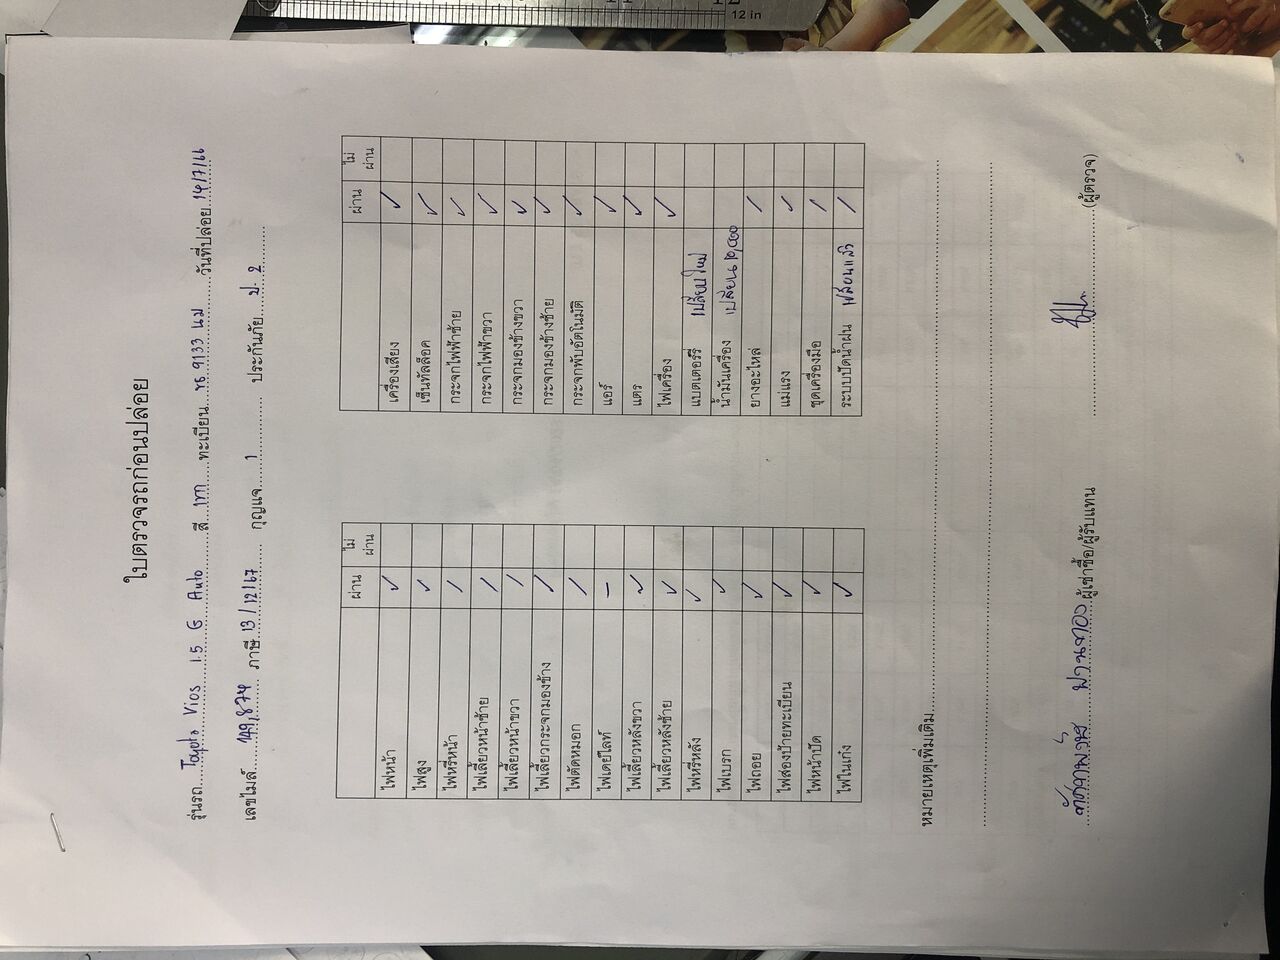 ใบตรวจรถก่อนปล่อย
รุ่นรถ.....Toyota Vios 1.5 G Auto.....สี...เทา.....ทะเบียน...9133 นม.....วันที่ปล่อย.14/7/66
เลขไมล์.....149,874.....ภาษี 13/12/67.....กุญแจ.....1.....ประกันภัย.....ป. 2.....
ผ่าน ไม่ผ่าน
ไฟหน้า ✓
ไฟสูง ✓
ไฟหรี่หน้า /
ไฟเลี้ยวหน้าซ้าย /
ไฟเลี้ยวหน้าขวา /
ไฟเลี้ยวกระจกมองข้าง /
ไฟตัดหมอก /
ไฟเดย์ไลท์ –
ไฟเลี้ยวหลังขวา ✓
ไฟเลี้ยวหลังซ้าย ✓
ไฟหรี่หลัง ✓
ไฟเบรก ✓
ไฟถอย ✓
ไฟส่องป้ายทะเบียน ✓
ไฟหน้าปัด ✓
ไฟในเก๋ง ✓
ผ่าน ไม่ผ่าน
เครื่องเสียง ✓
เซ็นทัลล็อค ✓
กระจกไฟฟ้าซ้าย ✓
กระจกไฟฟ้าขวา ✓
กระจกมองข้างขวา ✓
กระจกมองข้างซ้าย ✓
กระจกพับอัตโนมัติ ✓
แอร์ ✓
แตร ✓
ไฟเครื่อง ✓
แบตเตอรรี่ เปลี่ยนใหม่
น้ำมันเครื่อง เปลี่ยน 10,000
ยางอะไหล่ /
แม่แรง ✓
ชุดเครื่องมือ /
ระบบปัดน้ำฝน เปลี่ยนแล้ว /
หมายเหตุเพิ่มเติม..........
..........ผู้เช่าซื้อ/ผู้รับแทน ..........(ผู้ตรวจ)